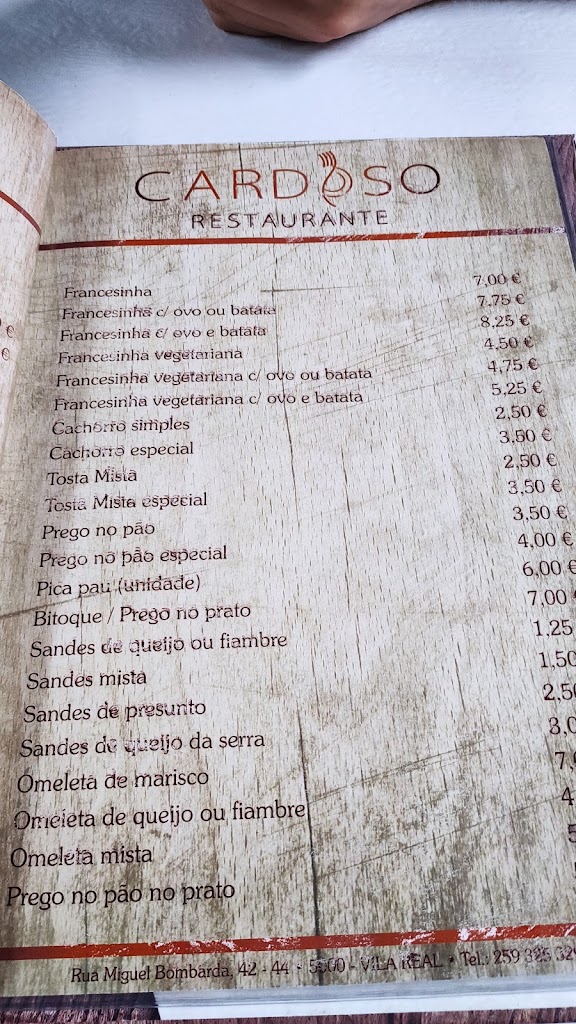 CARDOSO
RESTAURANTE
Francesinha 7,00 €
Francesinha c/ ovo ou batata 7,75 €
Francesinha c/ ovo e batata 8,25 €
Francesinha vegetariana 4,50 €
Francesinha vegetariana c/ ovo ou batata 4,75 €
Francesinha vegetariana c/ ovo e batata 5,25 €
Cachorro simples 2,50 €
Cachorro especial 3,50 €
Tosta Mista 2,50 €
Tosta Mista especial 3,50 €
Prego no pão 3,50 €
Prego no pão especial 4,00 €
Pica pau (unidade) 6,00 €
Bitoque / Prego no prato 7,00 €
Sandes de queijo ou fiambre 1,25
Sandes mista 1,50
Sandes de presunto 2,50
Sandes de queijo da serra 3,0
Omeleta de marisco 7,
Omeleta de queijo ou fiambre 4
Omeleta mista
Prego no pão no prato
Rua Miguel Bombarda, 42 - 44 - 5000 - VILA REAL • Tel.: 259 325 329